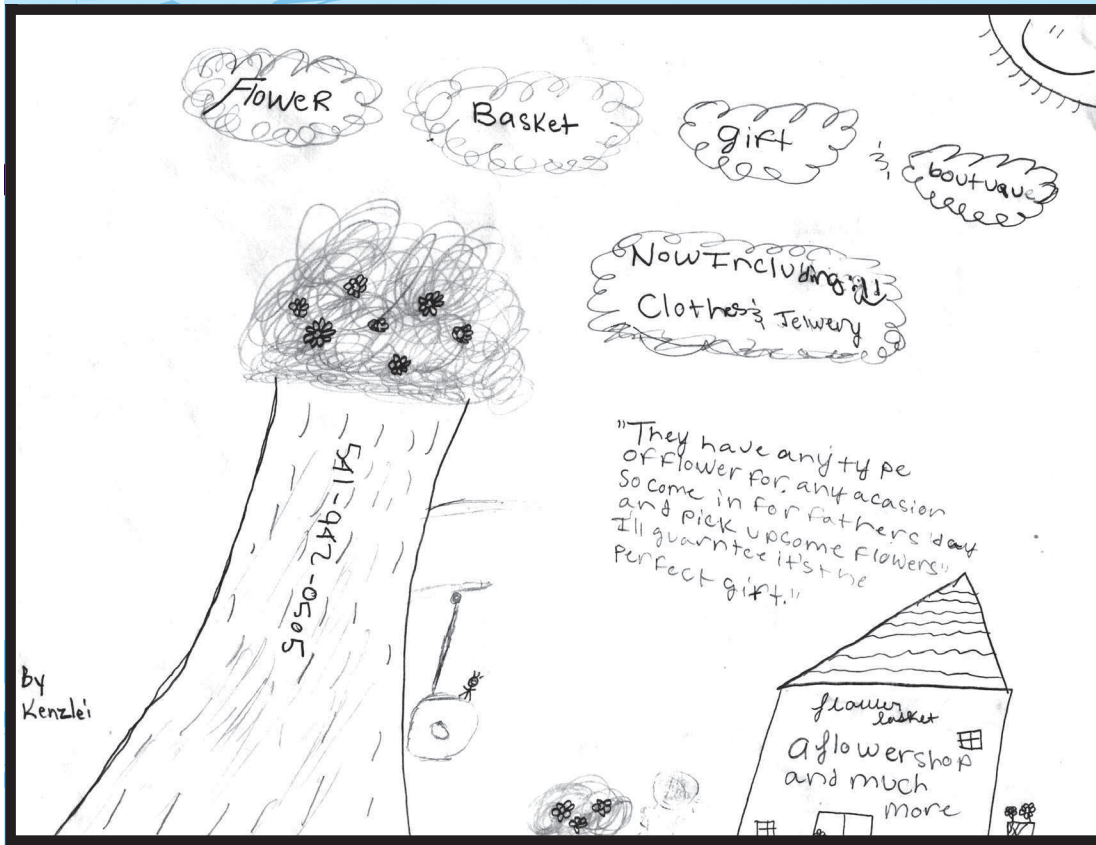 Flower
Basket
gift
&
boutuque
Now Including
Clothes & Jewery
541-942-0505
"They have any type
of flower for any acasion
So come in for fathers day
and pick upsome flowers"
I'll guarntee it's the
perfect gift."
by
Kenzlei
flower
basket
a flowershop
and much
more